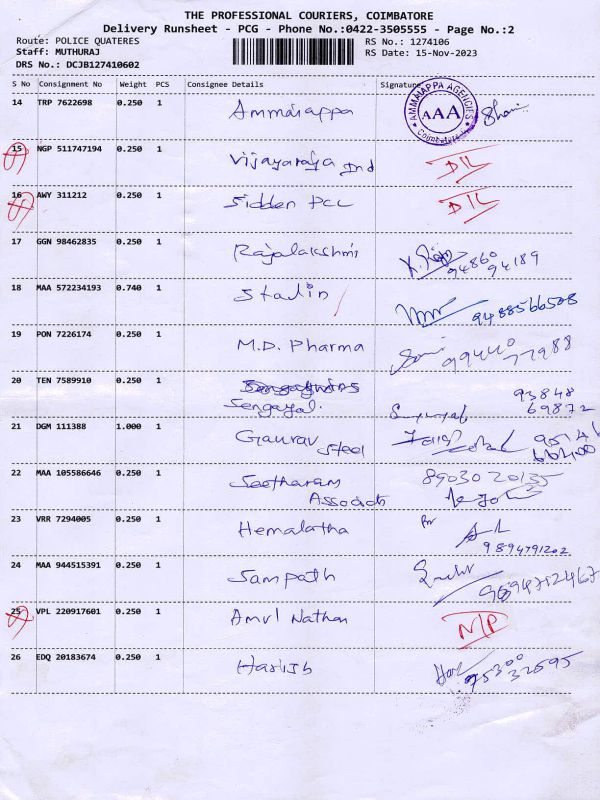 THE PROFESSIONAL COURIERS, COIMBATORE
Delivery Runsheet - PCG - Phone No.:0422-3505555 - Page No.:2
Route: POLICE QUATERES RS No.: 1274106
Staff: MUTHURAJ RS Date: 15-Nov-2023
DRS No.: DCJB127410602
S No Consignment No Weight PCS Consignee Details Signature
14 TRP 7622698 0.250 1 Ammaiappa AMMAIAPPA AGENCIES AAA
15 NGP 511747194 0.250 1 Vijayaraja Ind D/L
16 AWY 311212 0.250 1 Sidden PCL D/L
17 GGN 98462835 0.250 1 Rajalakshmi 94860 94189
18 MAA 572234193 0.740 1 Stalin 9488566508
19 PON 7226174 0.250 1 M.D. Pharma 99440 77988
20 TEN 7589910 0.250 1 Sengayal. 93848 69872
21 DGM 111388 1.000 1 Gaurav Steel
22 MAA 105586646 0.250 1 Seetharam Associats 89030 20135
23 VRR 7294005 0.250 1 Hemalatha 9894791202
24 MAA 944515391 0.250 1 Sampath
25 VPL 220917601 0.250 1 Amul Nathan N/P
26 EDQ 20183674 0.250 1 Harish 75300 32595